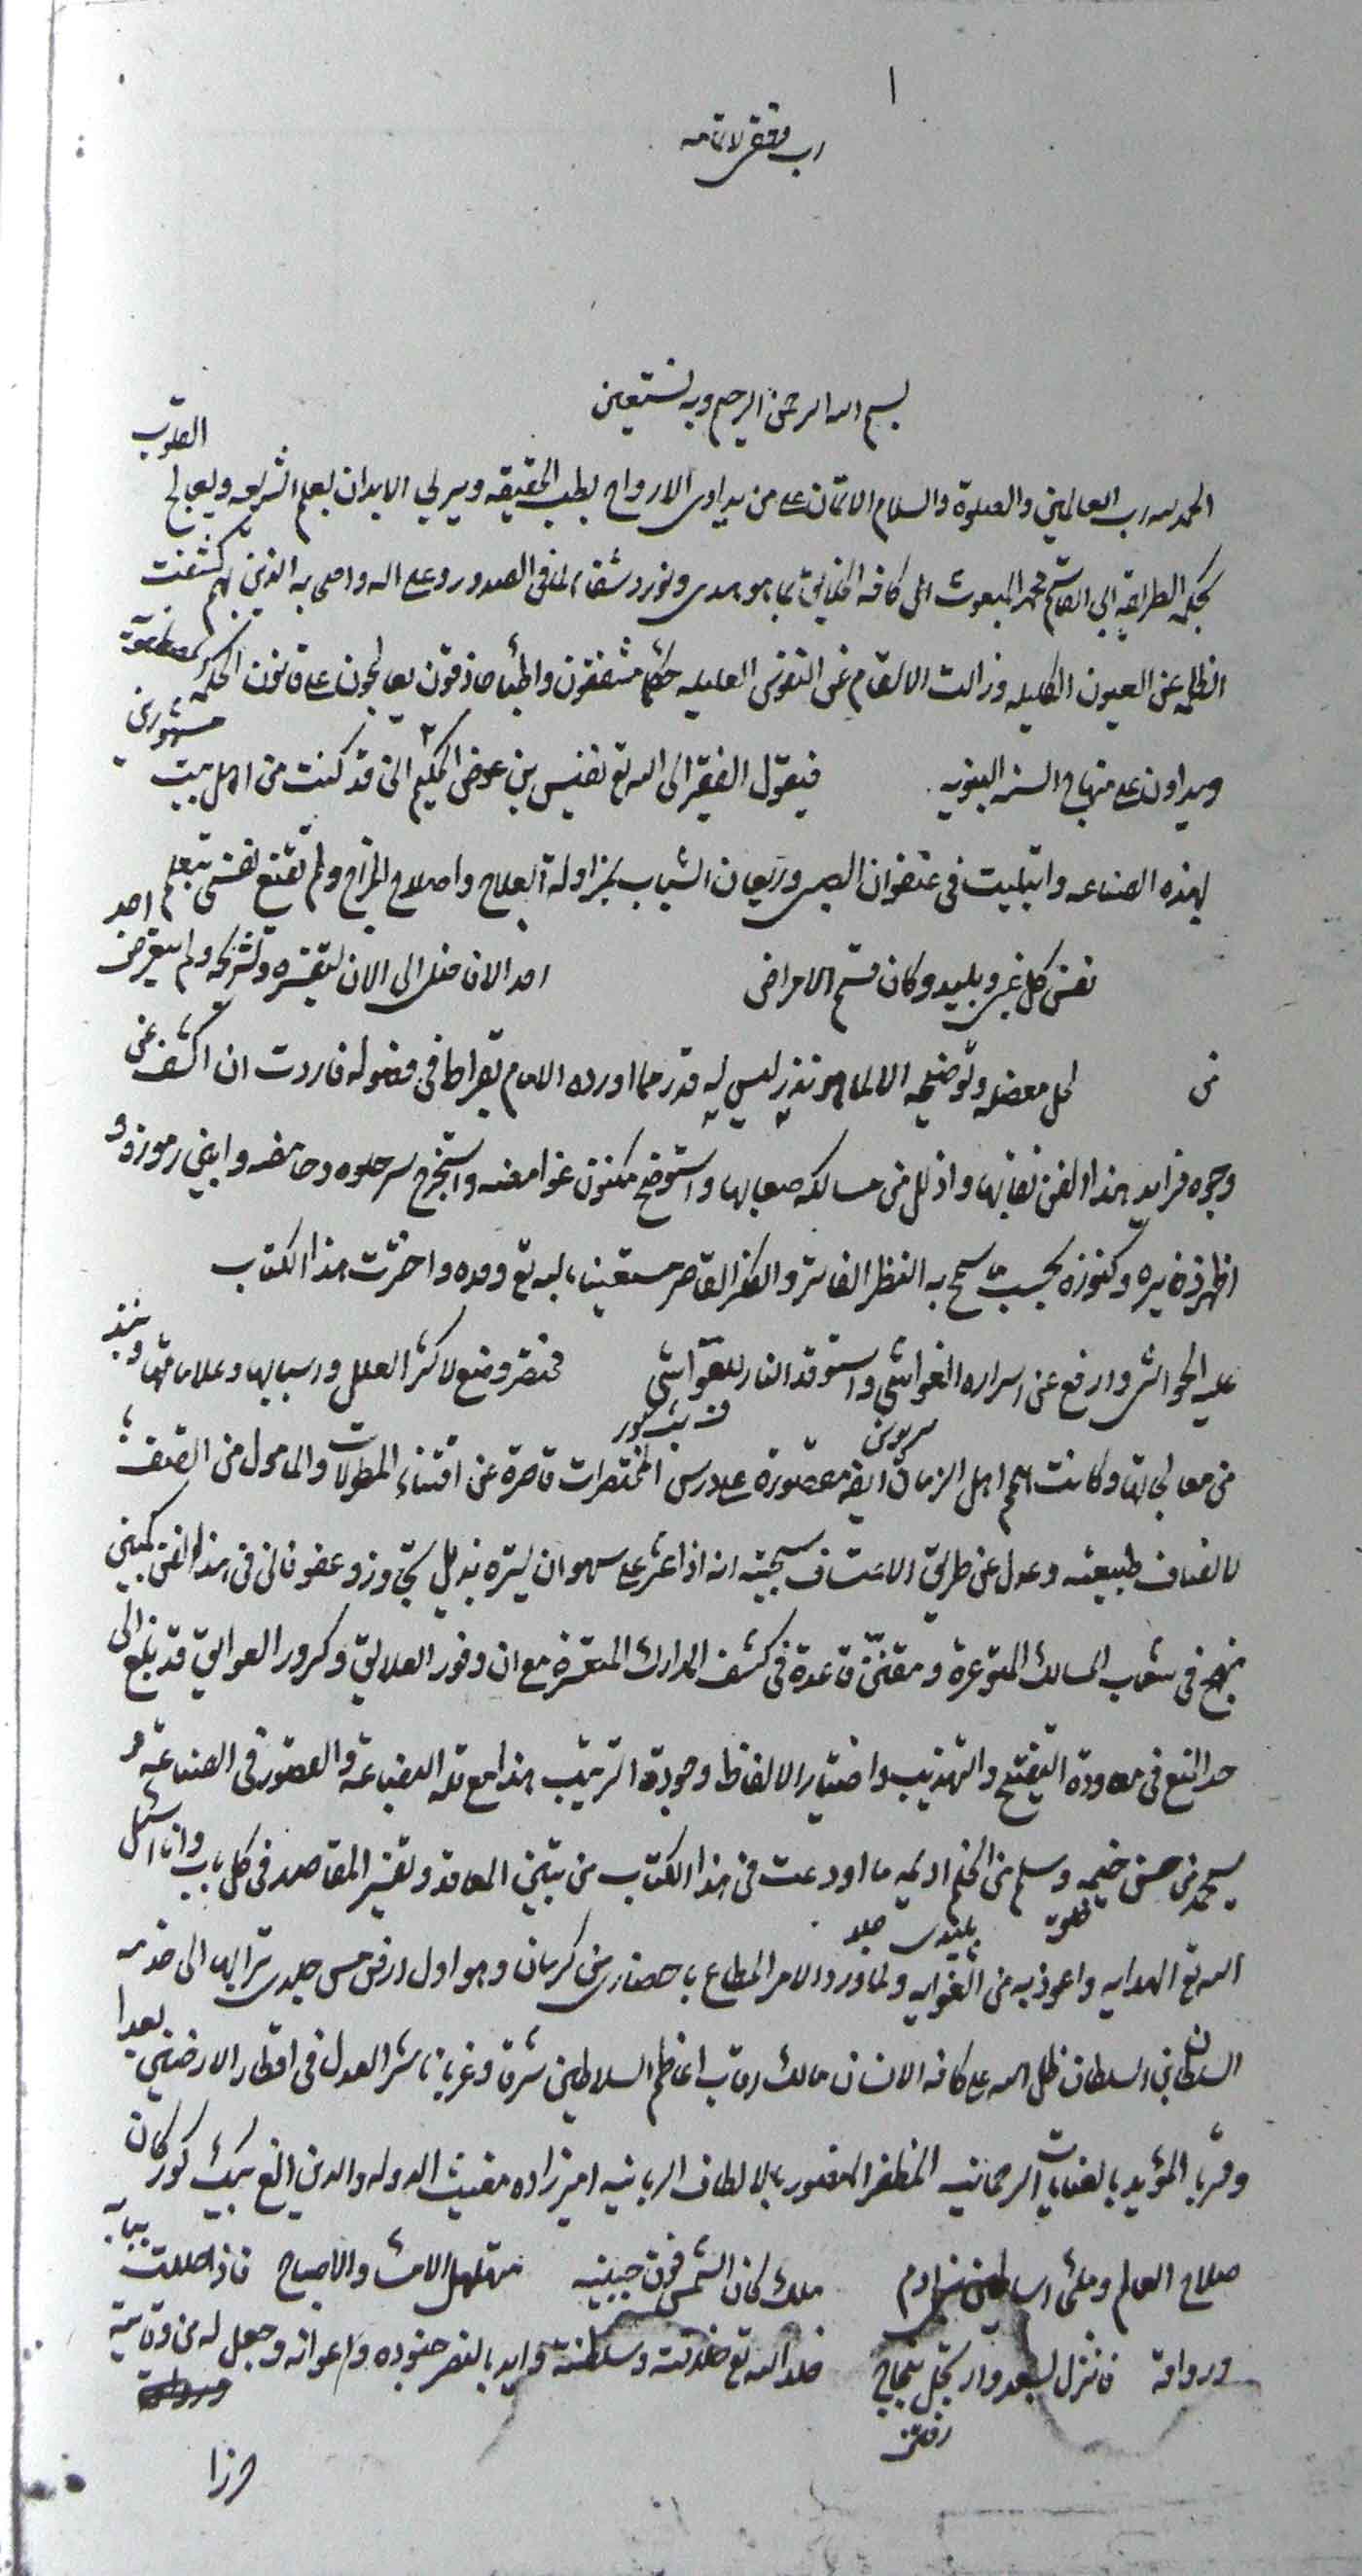 ١
رب وفقنى لاتمامه
بسم الله الرحمن الرحيم وبه نستعين
الحمد لله رب العالمين والصلوة والسلام الاتمان على من يداوى الارواح بطب الحقيقه ويبرئ الابدان بعلم الشريعه ويعالج القلوب
بحكمه الطريقه ابى القاسم محمد المبعوث الى كافه الخلايق بما هو هدى ونور وشفاء لما فى الصدور وعلى اله واصحابه الذين بهم كشفت
الظلمه عن العيون الكليله وزالت الاسقام عن النفوس العليله حكما مشفقون واطبأ حاذقون يعالجون على قانون الحكمه المصطفويه
ويداون على منهاج السنه النبويه فيقول الفقير الى الله تع نفيس بن عوض الحكيم انى قد كنت من اهل بيت مشهورين
بهذه الصناعه وابتليت فى عنفوان الصبى وريعان الشباب بمزاوله العلاج واصلاح المزاج ولم تقنع نفسى بتعلم
نفس كل غبى وبليد وكان قسم الامراض احد الان منى الى الان لتفسيره وتشريحه ولم يتعرض احد
من لحل معضله وتوضيحه الا لما هو نذير ليس له قدر مما اورده الامام بقراط فى فصوله فاردت ان اكشف عن
وجوه فرايد هذا الفن نقابها واذلل من مسالكه صعابها واستوضح مكنون غوامضه واستخرج سر حلوه وحامضه وابين رموزه و
اظهر ذخايره وكنوزه بحسب ما سمح به النظر الفاتر والفكر القاصر مستعينا بالله تع وحده واخترت هذا الكتاب
عليه الحواشى وارفع عن اسراره الغواشى واستوقد النار للغواشى مختصر وضع لاكثر العلل واسبابها وعلاماتها ونبذ
من معالجاتها وكانت همم اهل الزمان ايضه مقصورة على درس المختصرات قاصرة عن اقتناء المطولات والمامول من المصنف
بالانصاف طبيعته وعدل عن طريق الاعتساف سجيته انه اذا عثر على سهو ان يستره بذيل تجاوز وعفو فانى فى هذا الفن كمبنى
نهج فى شعاب المسالك المتوعرة ومقنن قاعدة فى كشف المدارك المتعسرة مع ان وفور العلايق وكرور العوايق قد بلغ الى
حد المنع فى معاودة التنقيح والتهذيب واختيار الالفاظ وجودة الترتيب هذا مع قلة البضاعة والقصور فى الصناعة و
سيحمد من حسن خيمه وسلم من الحلم اديمه ما اودعت فى هذا الكتاب من تبيين المعاقد وتفسير المقاصد فى كل باب وانا اسئل
الله تع الهدايه واعوذ به من الغوايه ولما ورد الامر المطاع باحضارى من كرمان وهو اول ارض مس جلدى ترابها الى خدمه
السلطان بن السلطان ظل الله على كافه الانسان مالك رقاب اعاظم السلاطين شرقا وغربا ناشر العدل فى اقطار الارضين بعدا
وقربا المؤيد بالعنايات الرحمانيه المظفر المنصور بالالطاف الربانيه اميرزاده مغيث الدوله والدين الغ بيك كوركان
صلاح العالم وملجئ اساطين بنى ادم ملك كان الشمس فوق جبينه متهلهل الامساء والاصباح فاذا حللت ببابه
ورواقه فانزل بسعد وارتحل بنجاح خلد الله تع خلافته وسلطنته وايد بالنصر جنوده واعوانه وجعل له من وقايته
حرزا